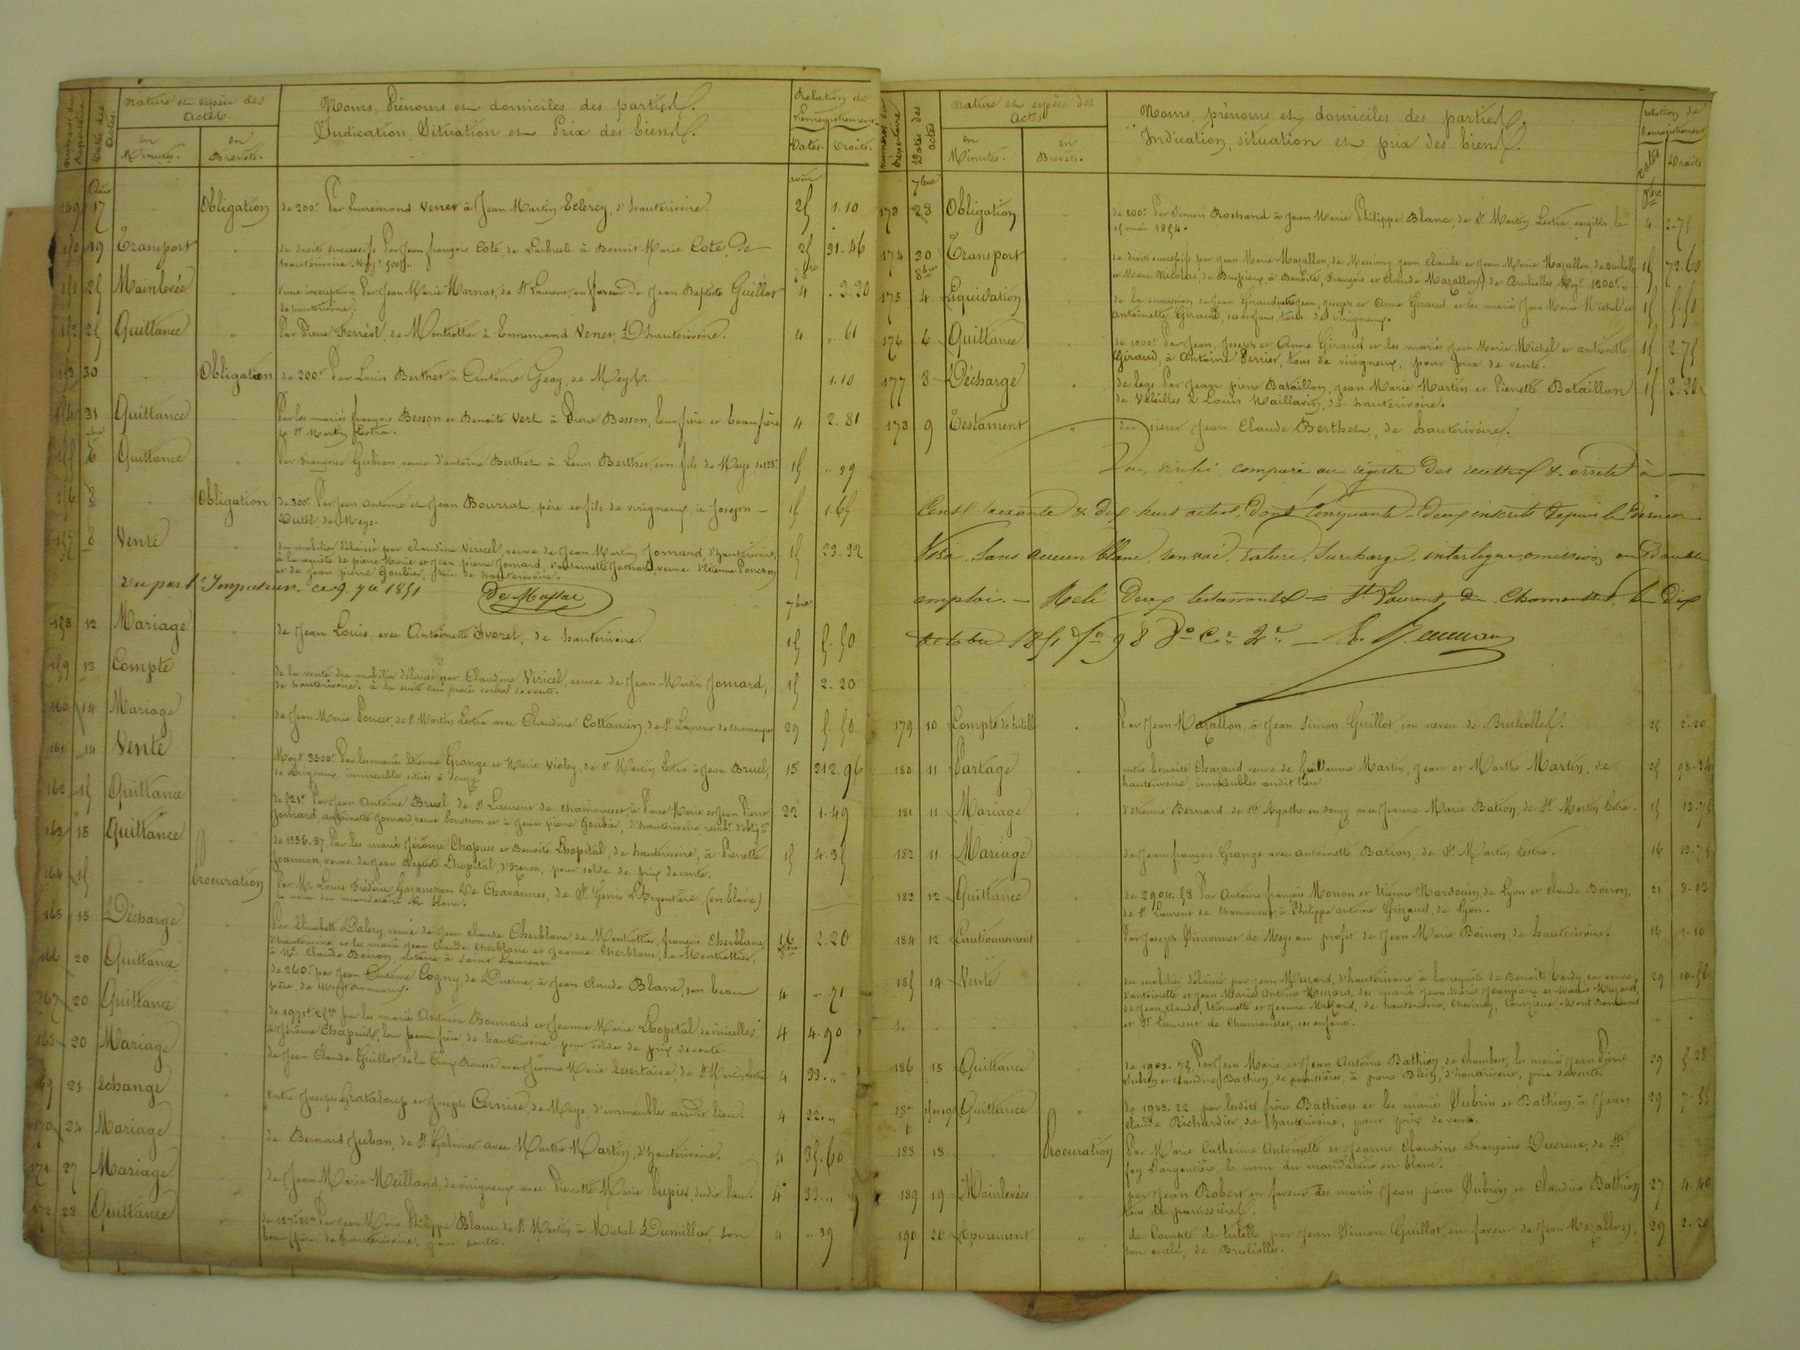 Nature et espèce des Actes.
Noms, Prénoms et domiciles des parties.
Indication, Situation et Prix des biens.
Relation de l'enregistrement
en Minutes. en Brevets. Dates. Droits.
149 17 Obligation de 200f Par Ennemond Venet à Jean Martin Eclercy, d'hauterivoire. 25 1.10
150 19 Transport de droits successifs Par Jean françois Cote, de à Benoit Marie Cote, de 25 31.46
hauterivoire. Moyt 500f.
151 25 Mainlevée d'une inscription Par Jean Marie Marnat, de St Laurent, en faveur de Jean Baptiste Guillot 4 2.20
de hauterivoire.
152 25 Quittance Par Pierre Ferréol, de Montrottier à Ennemond Venet, D'hauterivoire. 4 " 61
153 30 Obligation de 200f Par Louis Berthet à Antoine Geay, de Meys. 1.10
154 31 Quittance Par les mariés françois Besson et Benoite Vert à Pierre Besson, leur frère et beau frère 4 2.81
de St Martin Lestra.
155 6 Quittance Par françoise Gubian, veuve d'antoine Berthet à Louis Berthet, son fils de Meys, 15 " 29
156 8 Obligation de 300f Par Jean Antoine et Jean Bourrat, père et fils de virigneux, à Joseph 15 1.65
Dutel, de Meys.
157 8 Vente du mobilier délaissé par Claudine Viricel, veuve de Jean Martin Jomard, d'hauterivoire, 15 23.32
à la requête de pierre Marie et Jean pierre Jomard, d'antoinette Jomard, veuve d'Etienne Ponchon
et de Jean pierre Goubier, tous de hauterivoire.
Vu par l'Inspecteur. ce 9. 7bre 1851 De Massac
7bre
158 12 Mariage de Jean Louis, avec Antoinette Ivoret, de hauterivoire. 15 5.50
159 13 Compte de la vente du mobilier délaissé par Claudine Viricel, veuve de Jean Martin Jomard, 15 2.20
de hauterivoire. à la suite du procès verbal de vente.
160 14 Mariage de Jean Marie Poncet, de St Martin Lestra avec Claudine Cottancin, de St Laurent de chamousset 29 5.50
161 14 Vente Moyt 3500f Par les mariés Etienne Grange et Marie Violey, de St Martin Lestra à Jean Bruel, 15 212.96
de virigneux, immeubles situés à
162 15 Quittance de 521f Par Jean Antoine Bruel, de St Laurent de chamousset à Pierre Marie et Jean Pierre 22 1.49
Jomard, antoinette Jomard, veuve Ponchon et à Jean pierre Goubier, d'hauterivoire
163 15 Quittance de 1336.37 Par les mariés Jérôme Chapuis et Benoite Lhopital, de hauterivoire, à Pierrette 15 4.35
Joannon, veuve de Jean Baptiste Lhopital, pour solde de prix de vente.
164 15 Procuration Par M. Louis Frédéric de Chavannes, de St Genis L'Argentière (en blanc)
le nom du mandataire en blanc.
165 15 Décharge Par Elisabeth Dalery, veuve de Jean Claude Cherblanc, de Montrottier, françois Cherblanc, 16 2.20
d'hauterivoire et les mariés Jean Claude Cherblanc et Jeanne Cherblanc, de Montrottier,
à Me Claude Boiron, notaire à Saint Laurent.
166 20 Quittance de 260f par Jean Antoine Cogny de Duerne, à Jean Claude Blanc, son beau 4 " 71
frère, de
167 20 Quittance de par les mariés Antoine Bonnard et Jeanne Marie Lhopital, de viricelles 4 4.90
à Jérôme Chapuis, leur beau frère, de hauterivoire, pour solde de prix de vente.
168 20 Mariage de Jean Claude Guillot, de la Croix Rousse avec Jeanne Marie, de St Martin Lestra 4 33."
169 21 échange entre Joseph Grataloup et Joseph Cernise, de Meys, d'immeubles audit lieu. 4 22."
170 24 Mariage de Bernard Juban, de St Galmier avec Marthe Martin, d'hauterivoire. 4 35.60
171 27 Mariage de Jean Marie Meilland, de virigneux avec Pierrette Marie Pupier, dudit lieu. 4 33."
172 28 Quittance de Par Jean Marie Philippe Blanc, de St Martin à Michel Dumillier, son 4 " 39
beau frère, de hauterivoire, pour soulte.
Nature et espèce des Actes
Noms, prénoms et domiciles des parties.
Indication, situation et prix des biens.
relation de l'enregistrement
en Minutes. en Brevets. Dates Droits
7bre
173 28 Obligation de 500f Par Simon Rochand à Jean Marie Philippe Blanc, de St Martin Lestra, exigible le 4 2.75
15 mai 1854.
174 30 Transport de droits successifs par Jean Marie Mazallon, de Messimy, Jean Claude et Jean Marie Mazallon, de Brullioles 15 72.60
et Marie Nicolas, de Bussières, à Benoite, François et Claude Mazallon, de Moyt 1200f
8bre
175 4 Liquidation de la succession de Jean Giraud entre Jean, Joseph et Anne Giraud et les mariés Jean Marie Michel et 15 5.50
antoinette Giraud, ses enfans tous de virigneux.
176 6 Quittance de 1000f Par Jean, Joseph et Anne Giraud et les mariés Jean Marie Michel et antoinette 15 2.75
Giraud, à Antoine Perrier, tous de virigneux, pour prix de vente.
177 8 Décharge de legs Par Jean pierre Bataillon, Jean Marie Martin et Pierrette Bataillon 15 2.20
de Viricelles à Louis Maillavin, de hauterivoire.
178 9 Testament du sieur Jean Claude Berthet, de hauterivoire.
Vu, vérifié, comparé au régistre des recettes & arrêté à
Cent soixante & dix huit actes, dont Cinquante-deux inscrits depuis le dernier
Visa, Sans aucun blanc, renvoi, rature, Surcharge, interligne, omission ou double
emploi. Relé deux testaments = St Laurent de Chamousset, le Dix
octobre 1851 fo 98 Vo Ce 2e
179 10 Compte de tutelle Par Jean Mazallon, à Jean Simon Guillot, son neveu de Brullioles. 25 2.20
180 11 Partage entre benoite Chazaud veuve de Guillaume Martin, Jean et Marthe Martin, de 25 98.34
hauterivoire immeubles audit lieu
181 11 Mariage d'étienne Bernard, de Ste Agathe en donzy avec Jeanne Marie Bation, de St Martin Lestra. 15 13.75
182 11 Mariage de Jean françois Grange avec antoinette Bation, de St Martin Lestra. 16 13.75
183 12 Quittance de 2904.58 Par Antoine françois Monon et Etienne Mardouin, de Lyon et Claude Boiron, 21 8.03
de St Laurent de chamousset à Philippe antoine Grizard, de Lyon.
184 12 Cautionnement Par Joseph Pinonnet de Meys au profit de Jean Marie Boinon, de hauterivoire. 16 1.10
185 14 Vente du mobilier délaissé par Jean Muzard, d'hauterivoire à la requête de Benoite Tardy sa veuve, 29 10.56
d'antoinette et Jean Marie Antoine Muzard, des mariés Jean Marie Jeanpierre et Marie Muzard,
de Jean Claude, Etiennette et Jeanne Muzard, de hauterivoire, Chevinay, Courzieux, Mont Romand
et St Laurent de Chamousset, ses enfans.
186 15 Quittance de 1903.75, Par Jean Marie et Jean Antoine Bathion, de Chambost, les mariés Jean Pierre 29 5.28
Subrin et Claudine Bathion, de panissières à pierre Blein, d'hauterivoire, prix de vente.
187 15 et 19 Quittance de 1948.22 par lesdits frères Bathion et les mariés Subrin et Bathion à Jean 29 7.55
Claude Richardier, de hauterivoire, pour prix de vente.
188 18 Procuration Par Marie Catherine Antoinette et Jeanne Claudine Françoise Ducreux, de Ste
foy Largentière, le nom du mandataire en blanc.
189 19 Mainlevées par Jean Robert en faveur des mariés Jean pierre Subrin et Claudine Bathion 27 4.40
tous de panissières.
190 20 Apurement de Compte de tutelle par Jean Simon Guillot, en faveur de Jean Mazallon, 29 2.20
son oncle, de Brullioles.